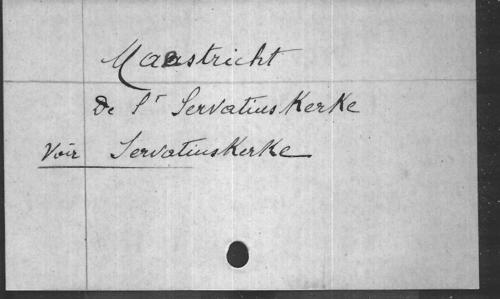 Maastricht
De St Servatius Kerke
Voir Servatiuskerke